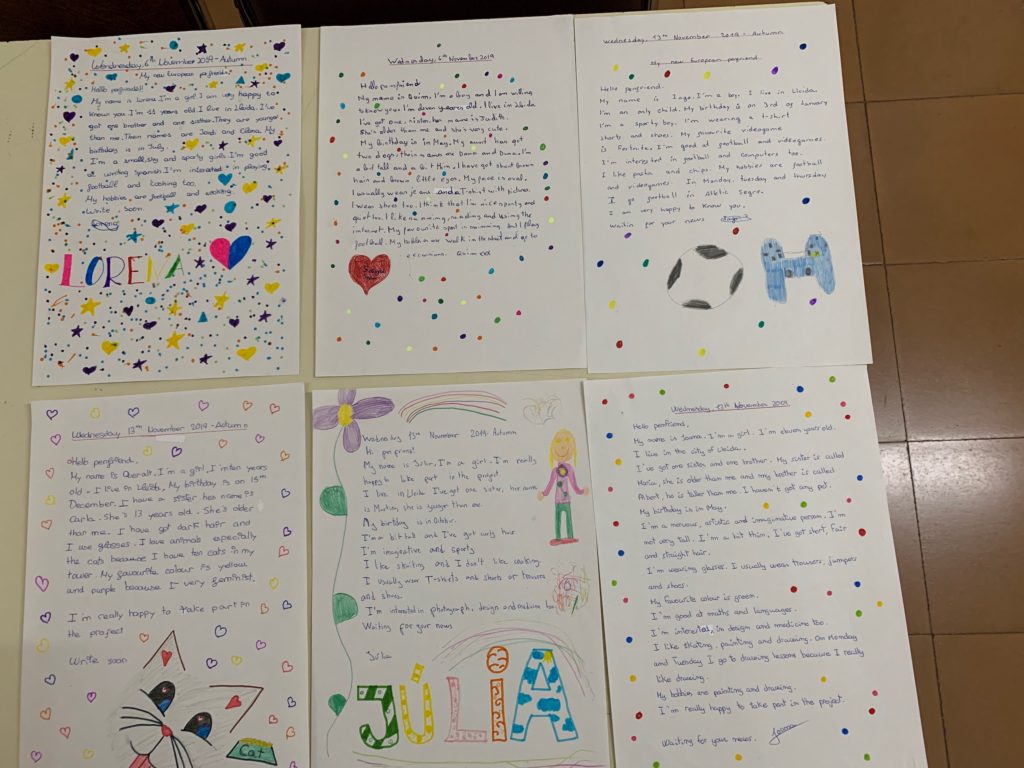 Wednesday, 6th November 2019-Autumn
My new European penfriends
Hello penfriend!!
My name is Lorena. I'm a girl. I am very happy to
Know you. I'm 11 years old. I live in Lleida. I've
got one brother and one sister. They are younger
than me. Their names are Jordi and
birthday is in July.
I'm a small, shy and sporty girl. I'm good
at writing Spanish. I'm interested in playing
football and cooking too.
My hobbies, are football and cooking.
Write soon
Lorena
LORENA
Wednesday, 6th November 2019
Hello penfriend
My name is I'm a boy and I am willing
to know you. I'm eleven years old. I live in Lleida
I've got one sister, her name is Judith.
She's older than me and she's very cute.
My Birthday is in May. My aunt has got
two dogs. Their names are and Duna. I'm
a bit tall and a bit thin. I have got short brown
hair and brown little eyes. My face is oval.
I usually wear jeans and a T-shirt with pictures.
I wear shoes too. I think that I'm nice, sporty and
quiet too. I like swimming, reading and using the
internet. My favourite sport is swimming but I play
football. My hobbies are walk in the street and go to
excursions.
Wednesday, 13th November 2019 - Autumn
My new European penfriend.
Hello penfriend.
My name is Iago. I'm a boy. I live in Lleida.
I'm an only child. My birthday is on 3rd of January
I'm a sporty boy. I'm wearing a t-shirt
shorts and shoes. My favourite videogame
is Fortnite. I'm good at football and videogames.
I'm interested in football and computers too.
I like pasta and chips. My hobbies are football
and videogames. In Monday, tuesday and thursday
I go football in Atlètic Segre.
I am very happy to Know you.
Waitin for your news Iago
Wednesday 13th November 2019-Autumn
Hello penfriend.
My name is Queralt, I'm a girl, I'm ten years
old. I live in Lleida. My birthday is on 15th
December. I have a sister her name is
Carla. She's 13 years old. She's older
than me. I have got dark hair and
I use glasses. I love animals especially
the cats because I have ten cats in my
tower. My favourite colour is yellow
and purple because I very feminist.
I'm really happy to take part in
the project
Write soon
Cat
Wednesday 13th November 2019. Autumn
Hi penfriend!
My name is Júlia, I'm a girl. I'm really
happy to take part in the project
I live in Lleida. I've got one sister, her name
is Martina, she is younger than me.
My birthday is in October.
I'm a bit tall and I've got curly hair.
I'm imaginative and sporty
I like skating and I don't like cooking.
I usually wear T-shirts and shorts or trousers
and shoes.
I'm interested in photograph, design and medicine too.
Waiting for your news
Júlia
JÚLIA
Wednesday, 13th November 2019.
Hello penfriend,
My name is Joana. I'm a girl. I'm eleven years old.
I live in the city of Lleida.
I've got one sister and one brother. My sister is called
Maria, she is older than me and my brother is called
Albert, he is taller than me. I haven't got any pet.
My birthday is in May.
I'm a nervous, artistic and imaginative person. I'm
not very tall. I'm a bit thin, I've got short, fair
and straight hair.
I'm wearing glasses. I usually wear trousers, jumpers
and shoes.
My favourite colour is green.
I'm good at maths and languages.
I'm interested, in design and medicine too.
I like skating, painting and drawing. On Monday
and Tuesday I go to drawing lessons because I really
like drawing.
My hobbies are painting and drawing.
I'm really happy to take part in the project.
Waiting for your news. Joana